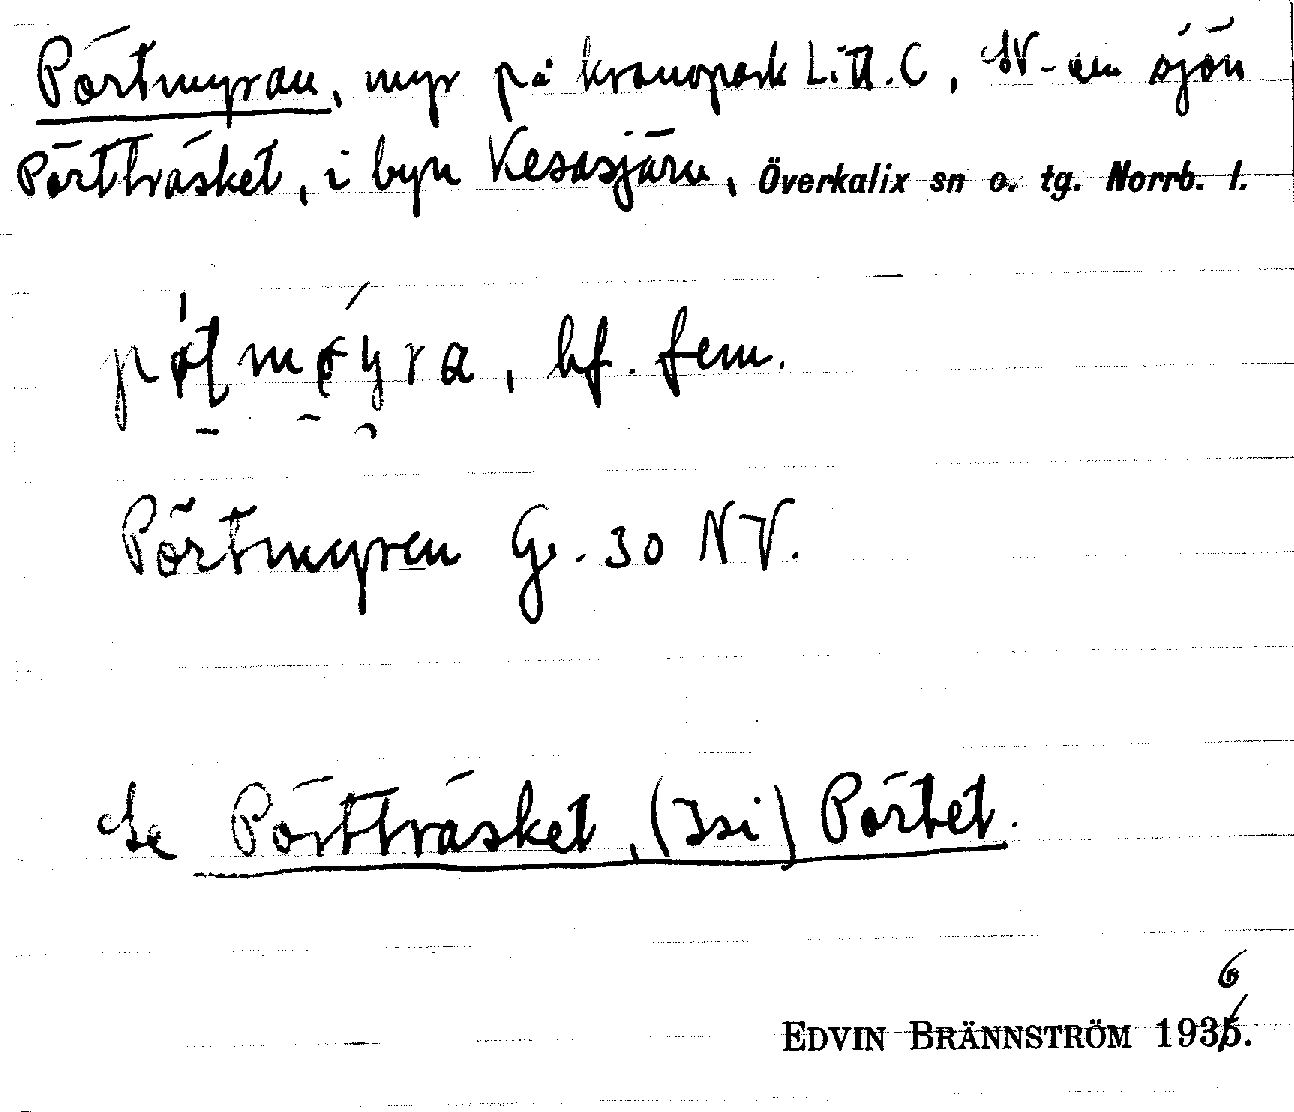 Pörtmyran, myr på kronopark Litt. C, SV om sjön
Pörtträsket, i byn Kesasjärv, Överkalix sn o. tg. Norrb. l.
bf. fem.
Pörtmyren Ge. 30 NV.
Se Pörtträsket, (Isi) Pörtet.
6
EDVIN BRÄNNSTRÖM 1935.